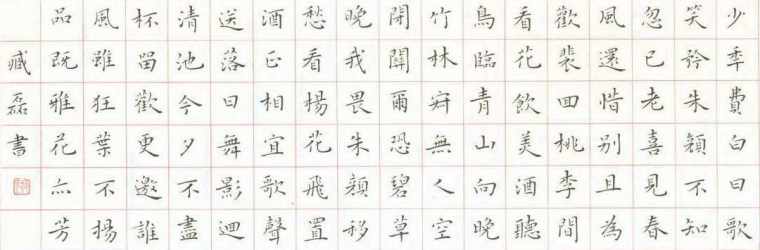 少秊費白日歌
笑矜朱顔不知
忽已老喜見春
風還惜别且為
歡裴回桃李間
看花飲美酒聽
鳥臨青山向晚
竹林寂無人空
閉關爾恐碧草
晚我畏朱顔移
愁看楊花飛置
酒正相宜歌聲
送落日舞影迴
清池今夕不盡
杯留歡更邀誰
風雖狂葉不揚
品既雅花亦芳
臧磊書